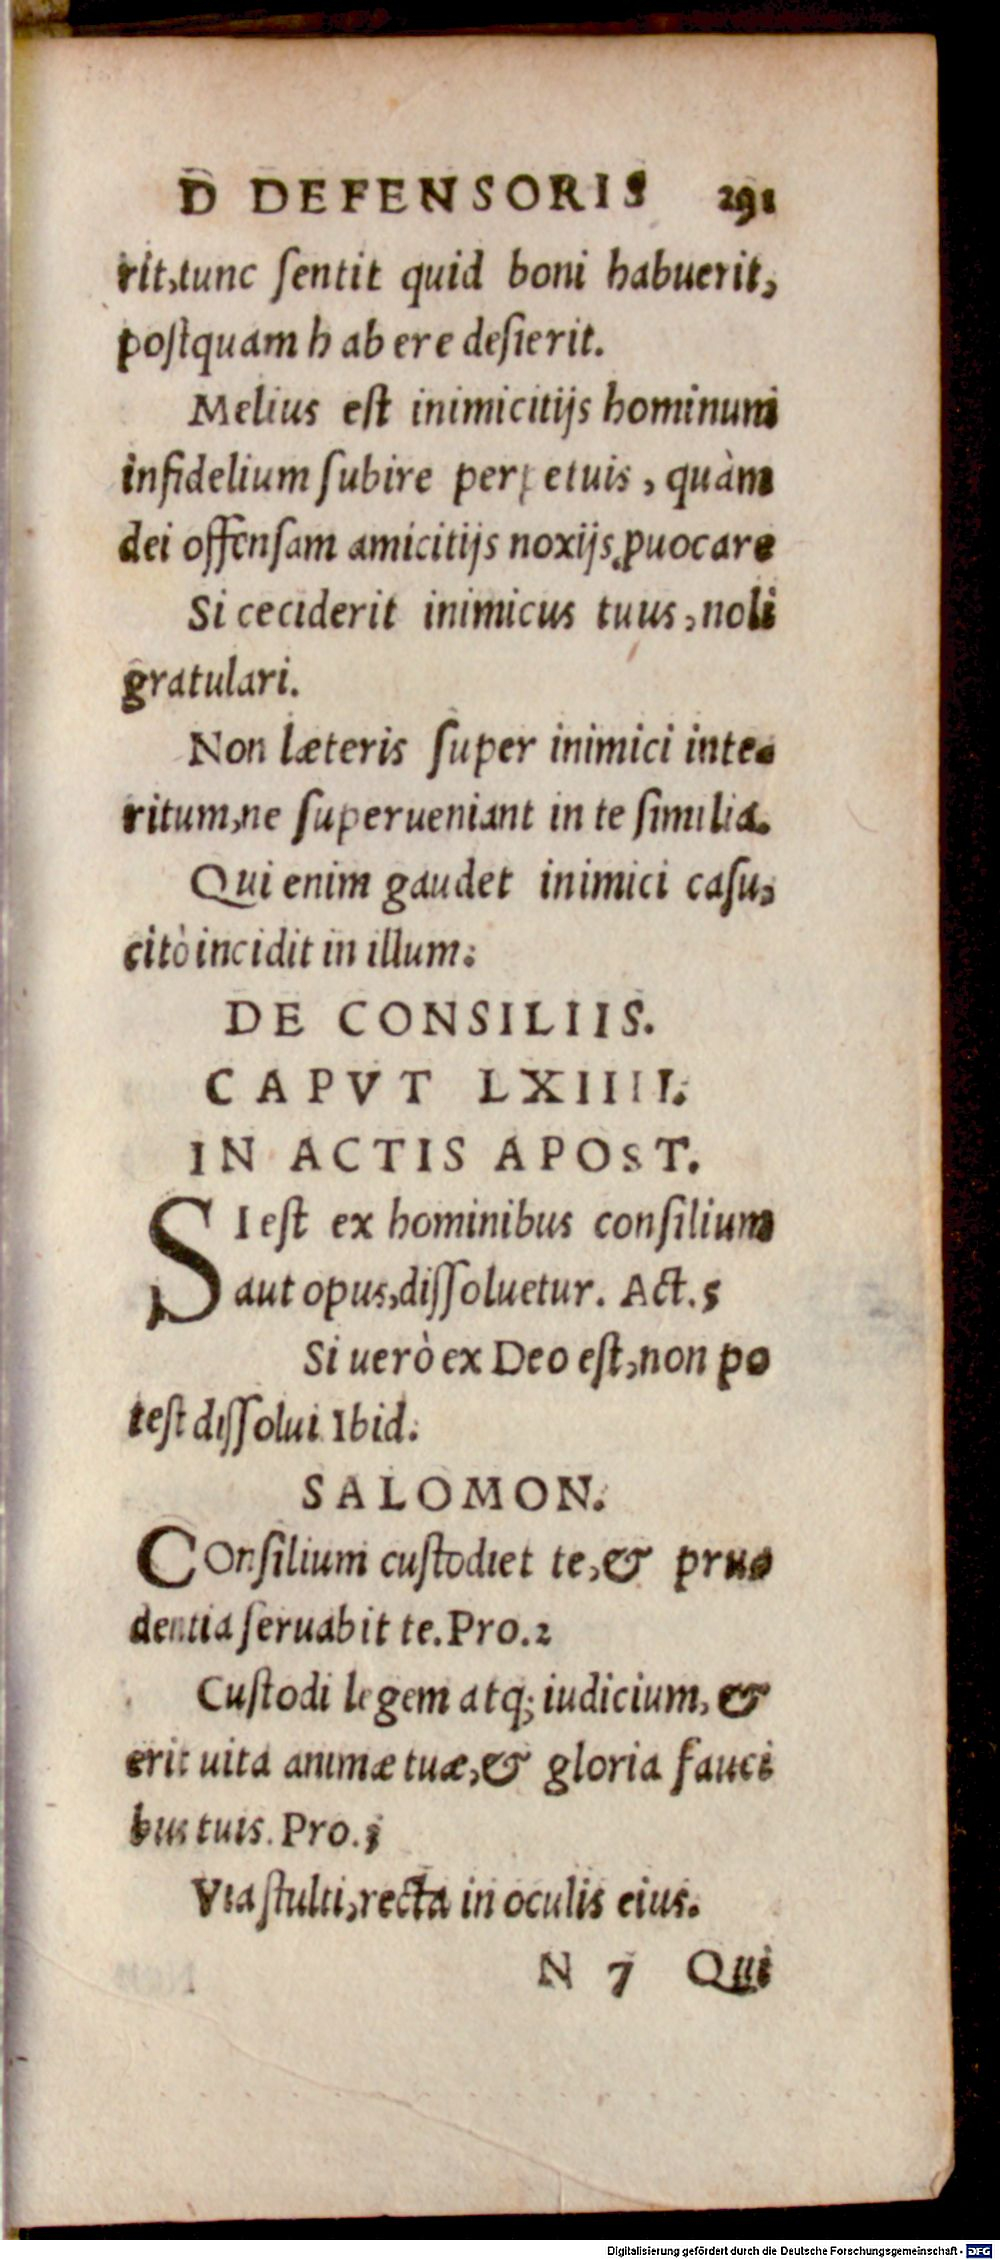 D DEFENSORIS 291
rit,tunc ſentit quid boni habuerit,
poſtquam habere deſierit.
Melius eſt inimicitijs hominum
infidelium ſubire perpetuis, quàm
dei offenſam amicitijs noxijs ꝓuocare
Si ceciderit inimicus tuus, noli
gratulari.
Non læteris ſuper inimici inte-
ritum,ne ſuperueniant in te ſimilia.
Qui enim gaudet inimici caſu,
citò incidit in illum.
DE CONSILIIS.
CAPVT LXIIII.
IN ACTIS APOST.
SI eſt ex hominibus conſilium
aut opus,diſſoluetur. Act.5
Si uerò ex Deo eſt,non po
teſt diſſolui Ibid.
SALOMON.
COnſilium cuſtodiet te,& pru-
dentia ſeruabit te. Pro.2
Cuſtodi legem atq; iudicium, &
erit uita animæ tuæ,& gloria fauci
bus tuis. Pro.3
Via ſtulti,recta in oculis eius.
N 7 Qui
Digitalisierung gefördert durch die Deutsche Forschungsgemeinschaft - DFG